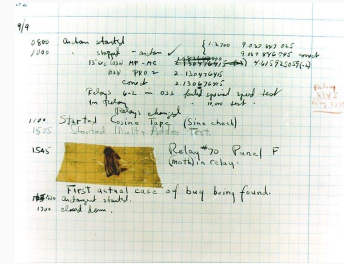 9/9
0800 antan started
1000 " stopped - antan ✓ { 1.2700 9.037 847 025
9.037 846 995 correct
13'00 (032) MP - MC 4.615925059(-2)
033 PRO 2 2.130476415
correct 2.130676415
Relays 6-2 in 033 failed special speed test
in Relay " 10,000 test.
Relays changed
1100 Started Cosine Tape (Sine check)
1525 Started Multi Adder Test.
1545 Relay #70 Panel F
(moth) in relay.
First actual case of bug being found.
1630 antangent started.
1700 closed down.